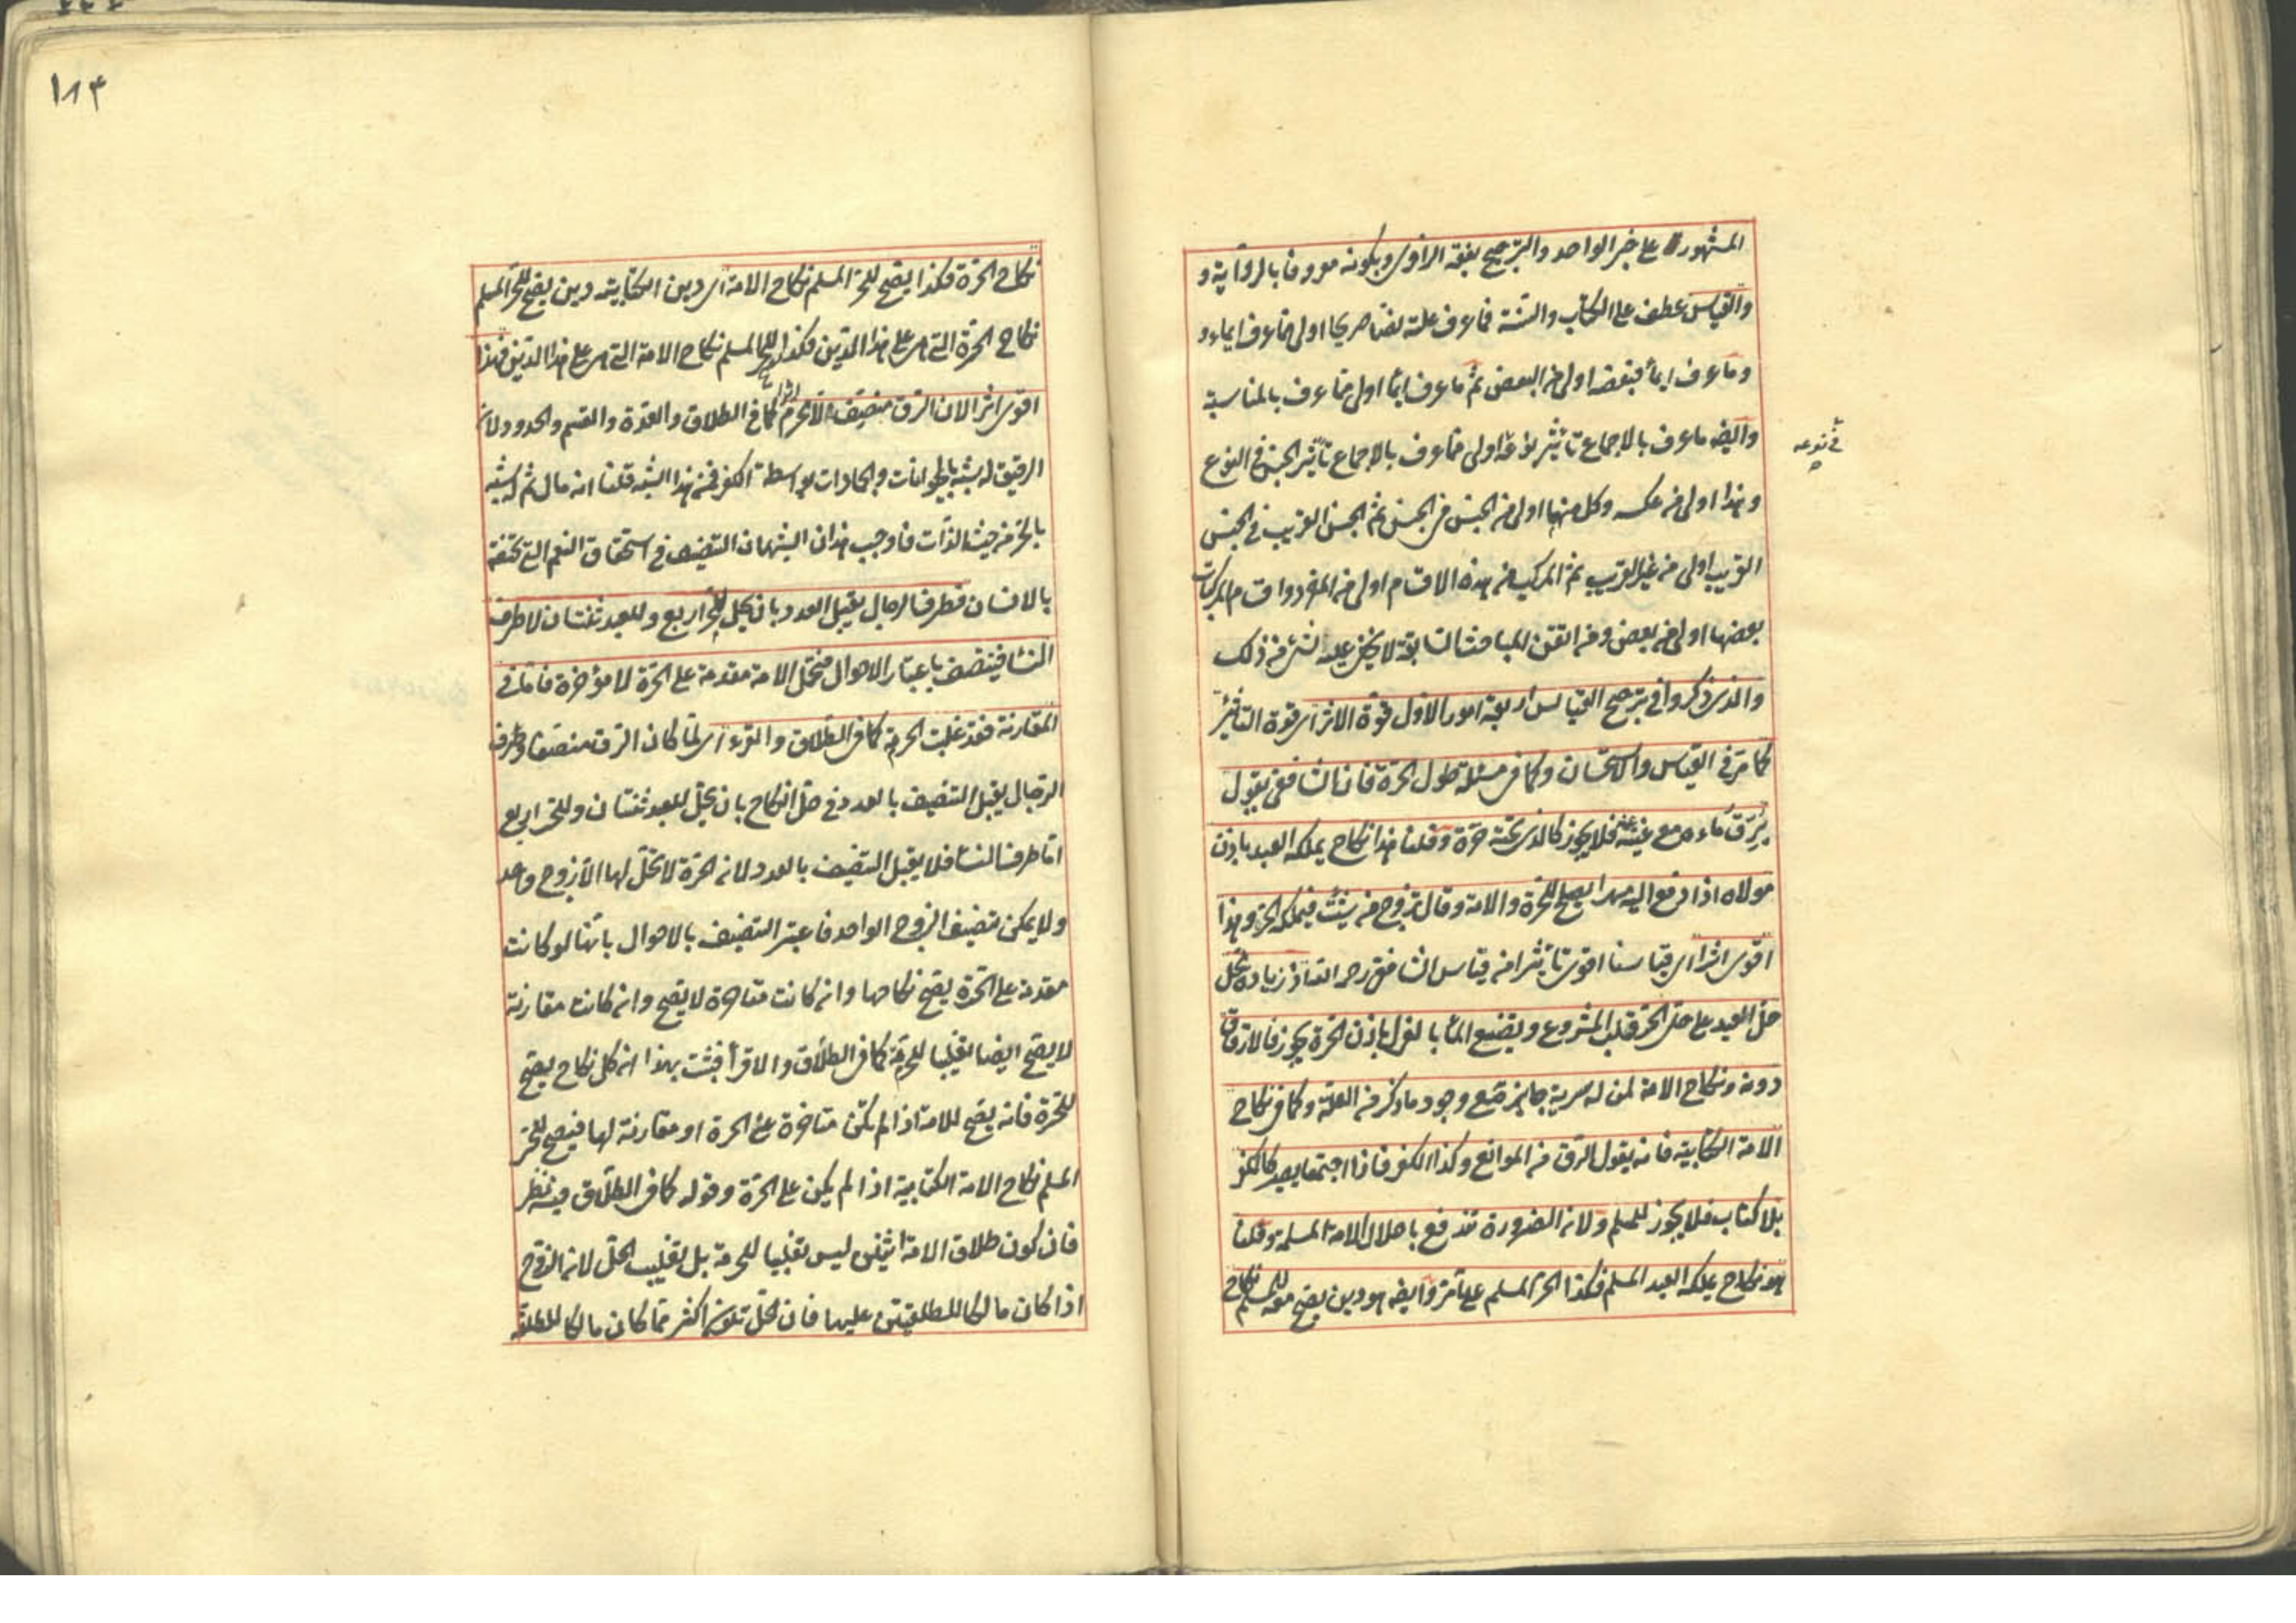 المشهور على خبر الواحد والترجيح بفقه الراوى وبكونه معروفا بالرواية و
والقياس عطف على الكتاب والسنة فما عرف علته نصا صريحا اولى مما عرف ايماء و
وما عرف ايمأ فبعضه اولى من البعض ثم ما عرف ايمأ اولى مما عرف بالمناسبة
وايضا ما عرف بالاجماع تأثير نوعه اولى مما عرف بالاجماع تأثير الجنس فى النوع
فى نوعه
وهذا اولى من عكسه وكل منهما اولى من الجنس فى الجنس ثم الجنس القريب فى الجنس
القريب اولى من غير القريب ثم المركب من هذه الاقسام اولى من المفرد واقسام المركبات
بعضها اولى من بعض ومن اتقن المباحث السابقة لا يخفى عليه شئ من ذلك
والذى ذكروا فى ترجيح القياس اربعة امور الاول قوة الاثر اى قوة التأثير
كما مر فى القياس والاستحسان وكما فى مسئلة طول الحرة فان الشافعى يقول
يرق ماءه مع غنيته عنه فلا يجوز كالذى تحته حرة وقلنا هذا نكاح يملكه العبد باذن
مولاه اذا دفع اليه مهرا يصلح للحرة والامة وقال تزوج من شئت فيملكه الحر وهذا
اقوى اثرا اى قياسنا اقوى تأثيرا من قياس الشافعى رحمه الله اذ زيادة محل
حل العبد على حل الحر قلب المشروع ويضيع المأ بالعزل باذن الحرة يجوز فالارقاق
دونه ونكاح الامة لمن له سرية جايز مع وجود ما ذكر من العلة وكما فى نكاح
الامة الكتابية فانه يقول الرق من الموانع وكذا الكفر فاذا اجتمعا يصير كالكفر
بلا كتاب فلا يجوز للمسلم ولان الضرورة تندفع باحلال الامة المسلمة وقلنا
هو نكاح يملكه العبد المسلم فكذا الحر المسلم على ما مر وايضا هو دين يصح معه للمسلم نكاح
١٨٣
نكاح الحرة فكذا يصح للحر المسلم نكاح الامة اى دين الكتابية دين يصح للحر المسلم
نكاح الحرة التى هى على هذا الدين فكذا للحر المسلم نكاح الامة التى هى على هذا الدين فهذا
اقوى اثرا لان الرق منصف لا محرم كما فى الطلاق والعدة والقسم والحدود ولان
الرقيق له شبه بالحيوانات والجمادات بواسطة الكفر فمن هذا الشبه قلنا انه مال ثم له شبه
بالحر من حيث الذات فاوجب هذان الشبهان التنصيف فى استحقاق النعم التى تختص
بالانسان فطرف الرجال يقبل العدد بان يحل للحر اربع وللعبد ثنتان لا طرف
النسأ فينتصف باعتبار الاحوال فتحل الامة مقدمة على الحرة لا مؤخرة فاما فى
المقارنة فقد غلبت الحرمة كما فى الطلاق والقرء اى لما كان الرق منصفا وطرف
الرجال يقبل التنصيف بالعدد فى حل النكاح بان يحل للعبد ثنتان وللحر اربع
اما طرف النسأ فلا يقبل التنصيف بالعدد لان الحرة لا تحل لها الا زوج واحد
ولا يمكن تنصيف الزوج الواحد فاعتبر التنصيف بالاحوال بانها لو كانت
مقدمة على الحرة يصح نكاحها وان كانت متأخرة لا يصح وان كانت مقارنة
لا يصح ايضا تغليبا للحرمة كما فى الطلاق والاقرأ فثبت بهذا ان كل نكاح يصح
للحرة فانه يصح للامة اذا لم تكن متأخرة عن الحرة او مقارنة لها فيصح للحر
المسلم نكاح الامة الكتابية اذا لم يكن على الحرة وقوله كما فى الطلاق فيه نظر
فان كون طلاق الامة اثنين ليس تغليبا للحرمة بل تغليب الحل لان الزوج
اذا كان مالكا للطلقتين عليها فان الحل تكون اكثر مما كان مالكا للطلقة